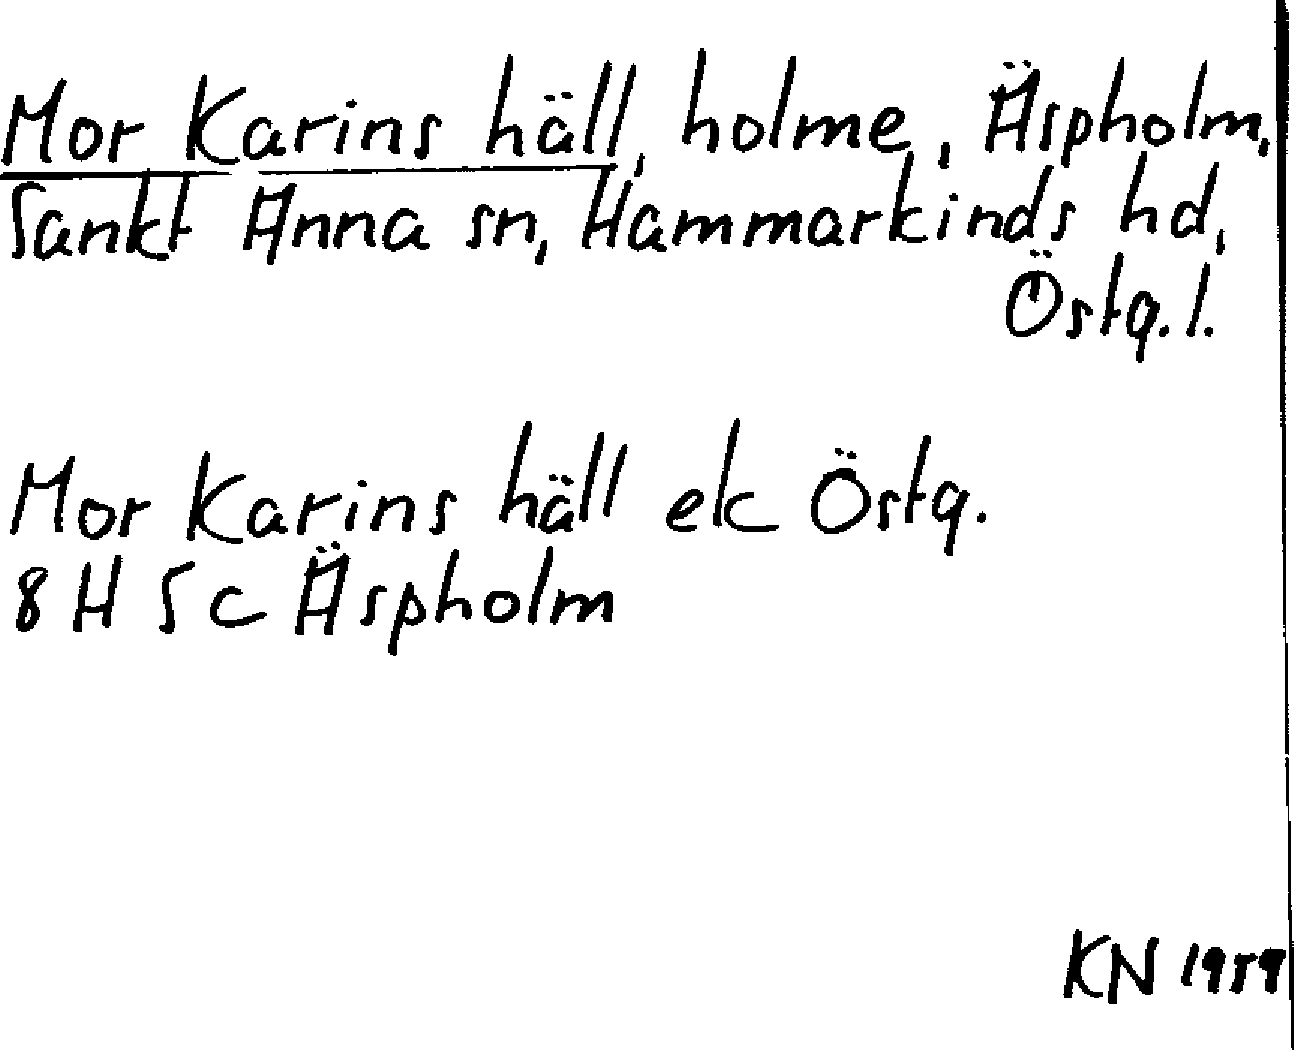 Mor Karins häll, holme, Äspholm,
Sankt Anna sn, Hammarkinds hd,
Östg. l.
Mor Karins häll ek Östg.
8 H 5 c Äspholm
KN 1959